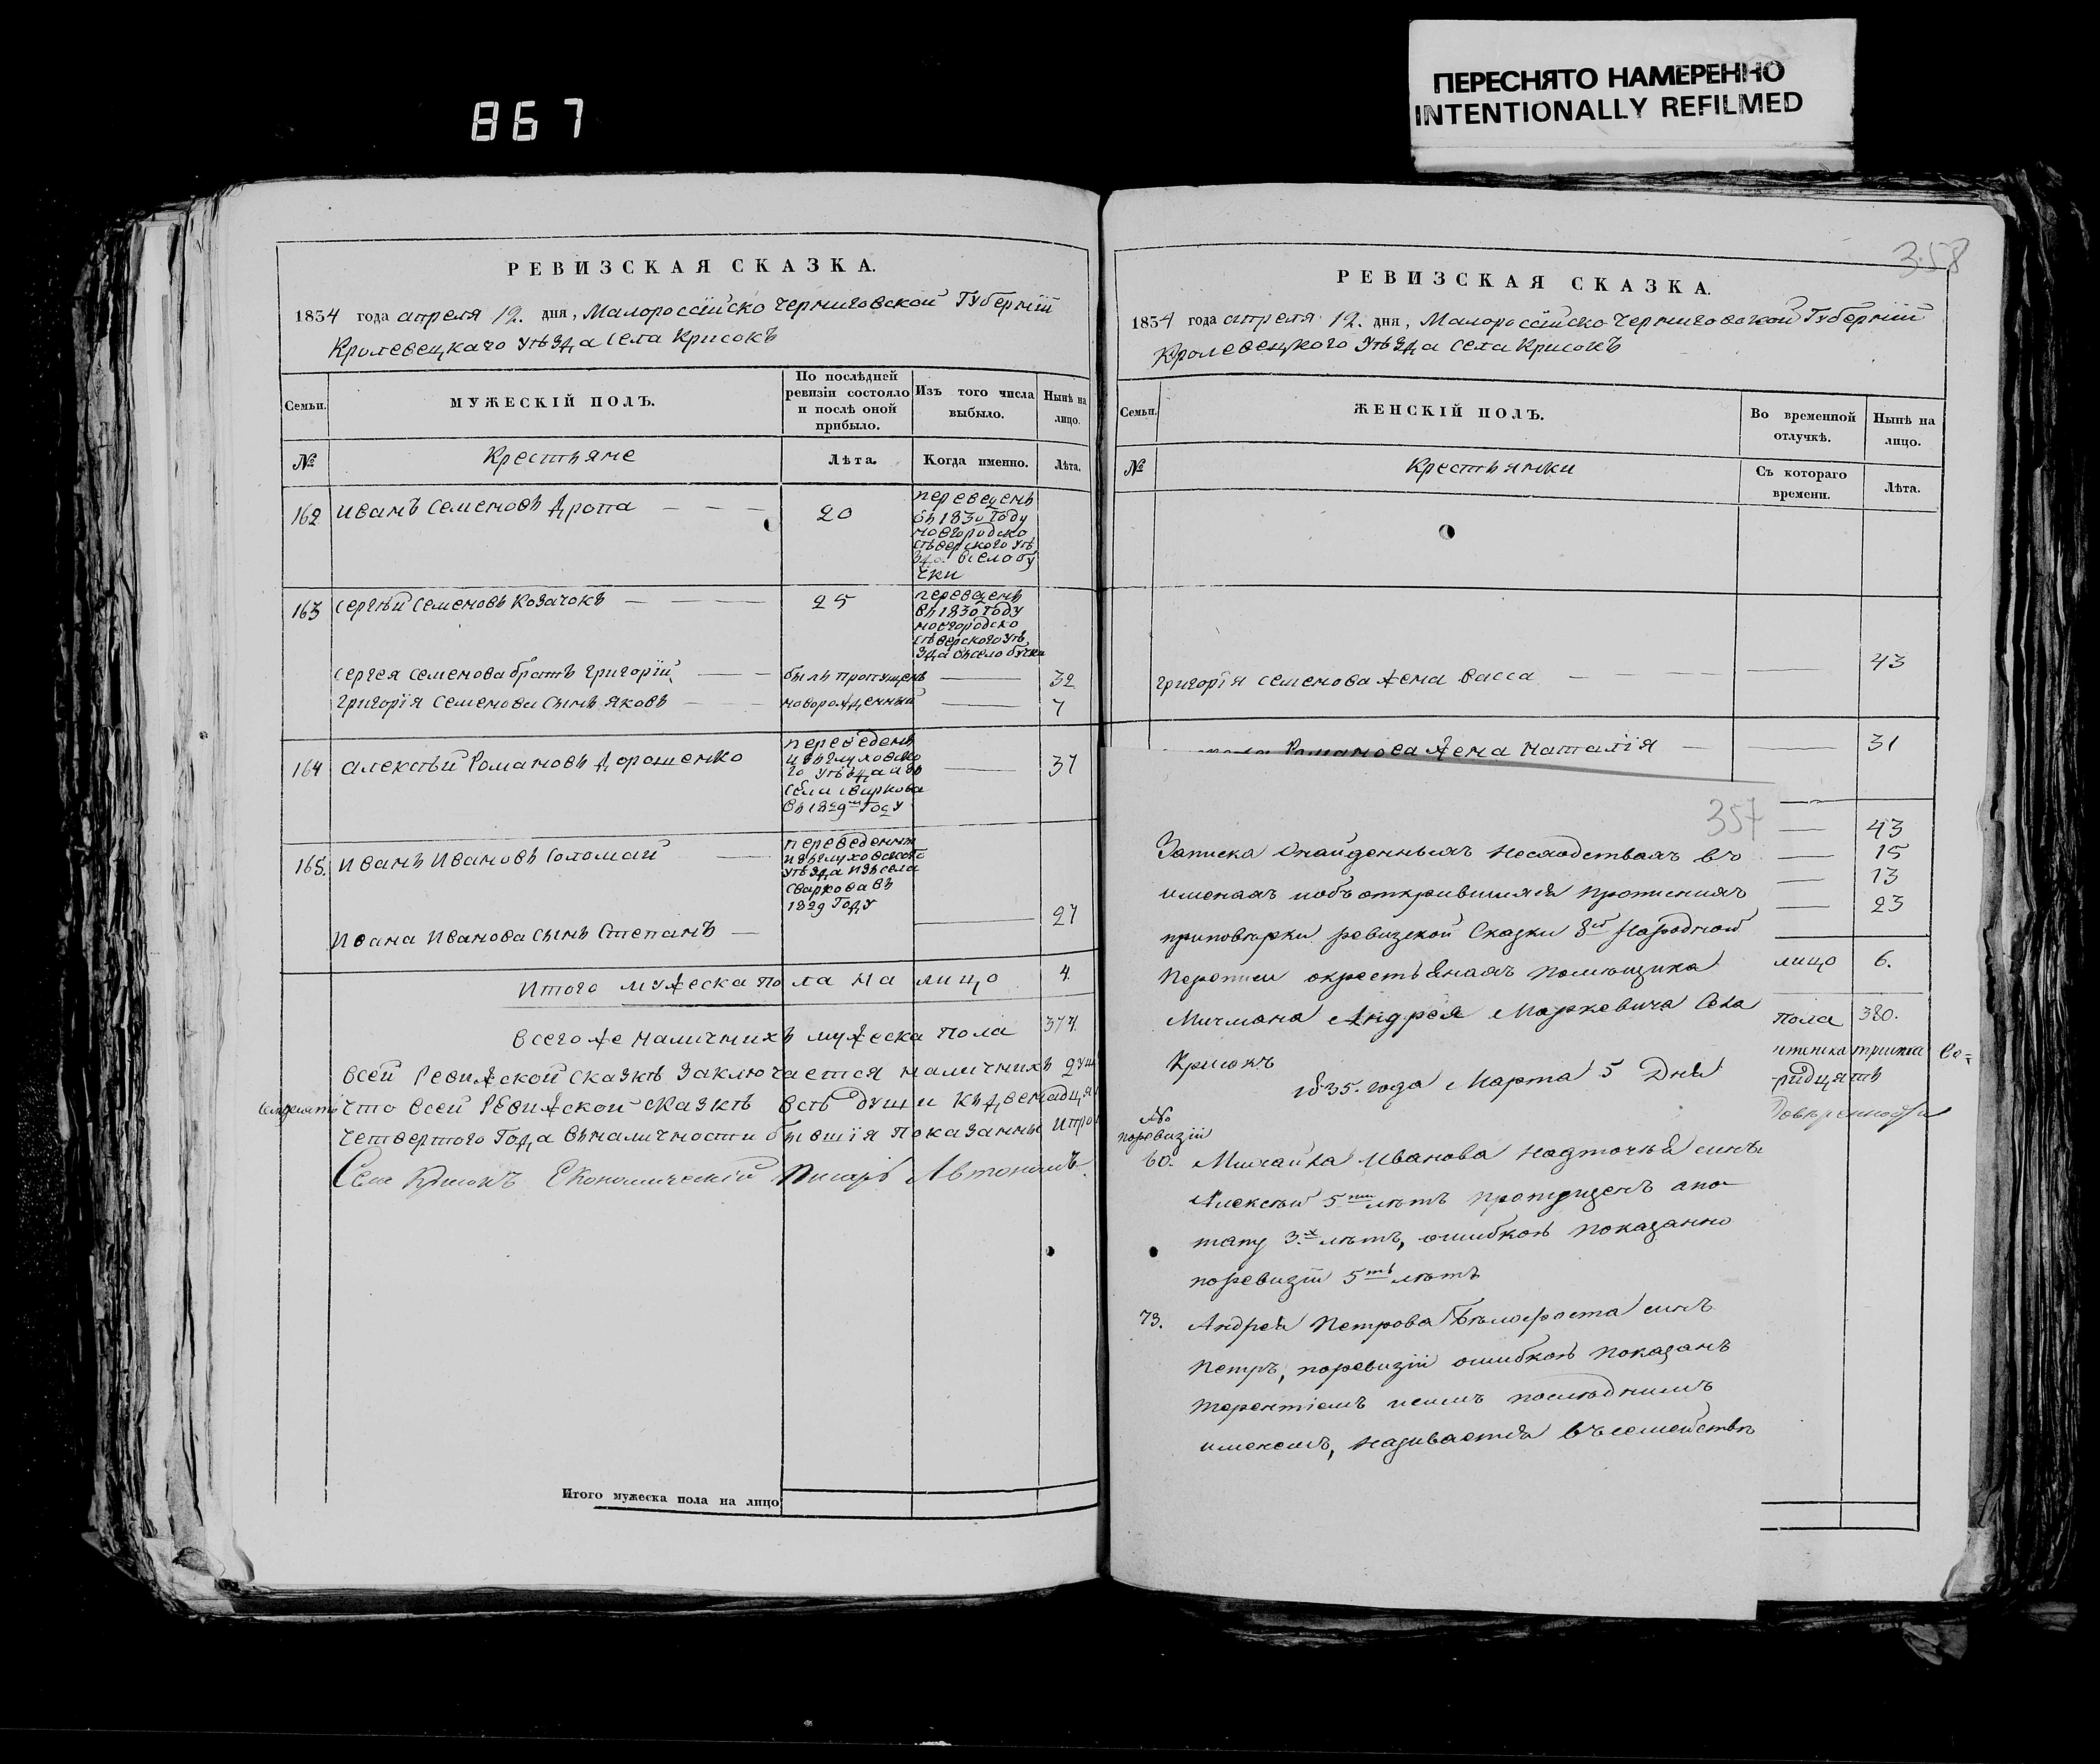 867
ПЕРЕСНЯТО НАМЕРЕННО
INTENTIONALLY REFILMED
РЕВИЗСКАЯ СКАЗКА.
1834 года апреля 12. дня, Малоросссійско Черниговской Губерніи
Кролевецкаго уѣзда села Крисокъ
Семьи.
МУЖЕСКІЙ ПОЛЪ.
По послѣдней ревизіи состояло и послѣ оной прибыло.
Изъ того числа выбыло.
Нынѣ на лицо.
№
Крестьяне
Лѣта.
Когда именно.
Лѣта.
162 Иванъ Семеновъ Дропа 20
переведенъ
въ 1830 году
новгородско
сѣверского уѣ
зда
чки
163 Сергѣй Семеновъ Козачокъ 25
переведенъ
въ 1830 году
новгородско
сѣверского уѣ
зда
Сергея Семенова братъ Григорій былъ пропущенъ 32
Григорія Семенова сынъ Яковъ новорожденный 7
164 Алексѣй Романовъ Дорошенко 37
переведенъ
изъ глуховско
го уѣзда изъ
села Сваркова
въ 1829 году
165. Иванъ Ивановъ Соломай
переведенны
изъ глуховского
уѣзда изъ села
Сваркова въ
1829 году
27
Ивана Иванова сынъ Степанъ
Итого мужеска пола на лицо 4.
Всего же наличнихъ мужеска пола 374.
Всей Ревижской сказкѣ заключается наличнихъ душ
что всей Ревижской сказкѣ всѣ души
четвертого года въ наличности бывшія показанны и про
Села Крисокъ Економическій Писарь Автономъ
Итого мужеска пола на лицо
358
РЕВИЗСКАЯ СКАЗКА.
1834 года апреля 12. дня, Малороссійско Черниговской Губерніи
Кролевецкого уѣзда села Крисокъ
Семьи.
ЖЕНСКІЙ ПОЛЪ.
Во временной отлучкѣ.
Нынѣ на лицо.
№
Крестьянки
Съ котораго времени.
Лѣта.
Григорія Семенова жена Васса 43
Романова жена Наталія 31
43
15
13
23
лицо 6.
пола 380.
357
Записка о найденныхъ несходствахъ въ
именахъ и объ открившихся
приповѣрки ревизской Сказки 8й Народной
Переписи о крестьянахъ помещика
Мичмана Андрея Маркевича Села
Крисокъ
1835. года Марта 5 Дня
№
поревизіи
60. Михайла Иванова Надточья синъ
Алексѣй 5ти лѣтъ пропущенъ апо
тату 3х лѣтъ, ошибкою показанно
поревизіи 5ть лѣтъ
73. Андрея Петрова Бѣлофоста синъ
Петръ, поревизіи ошибкою показанъ
Терентіемъ исимъ последнимъ
именемъ, называется въ семействѣ